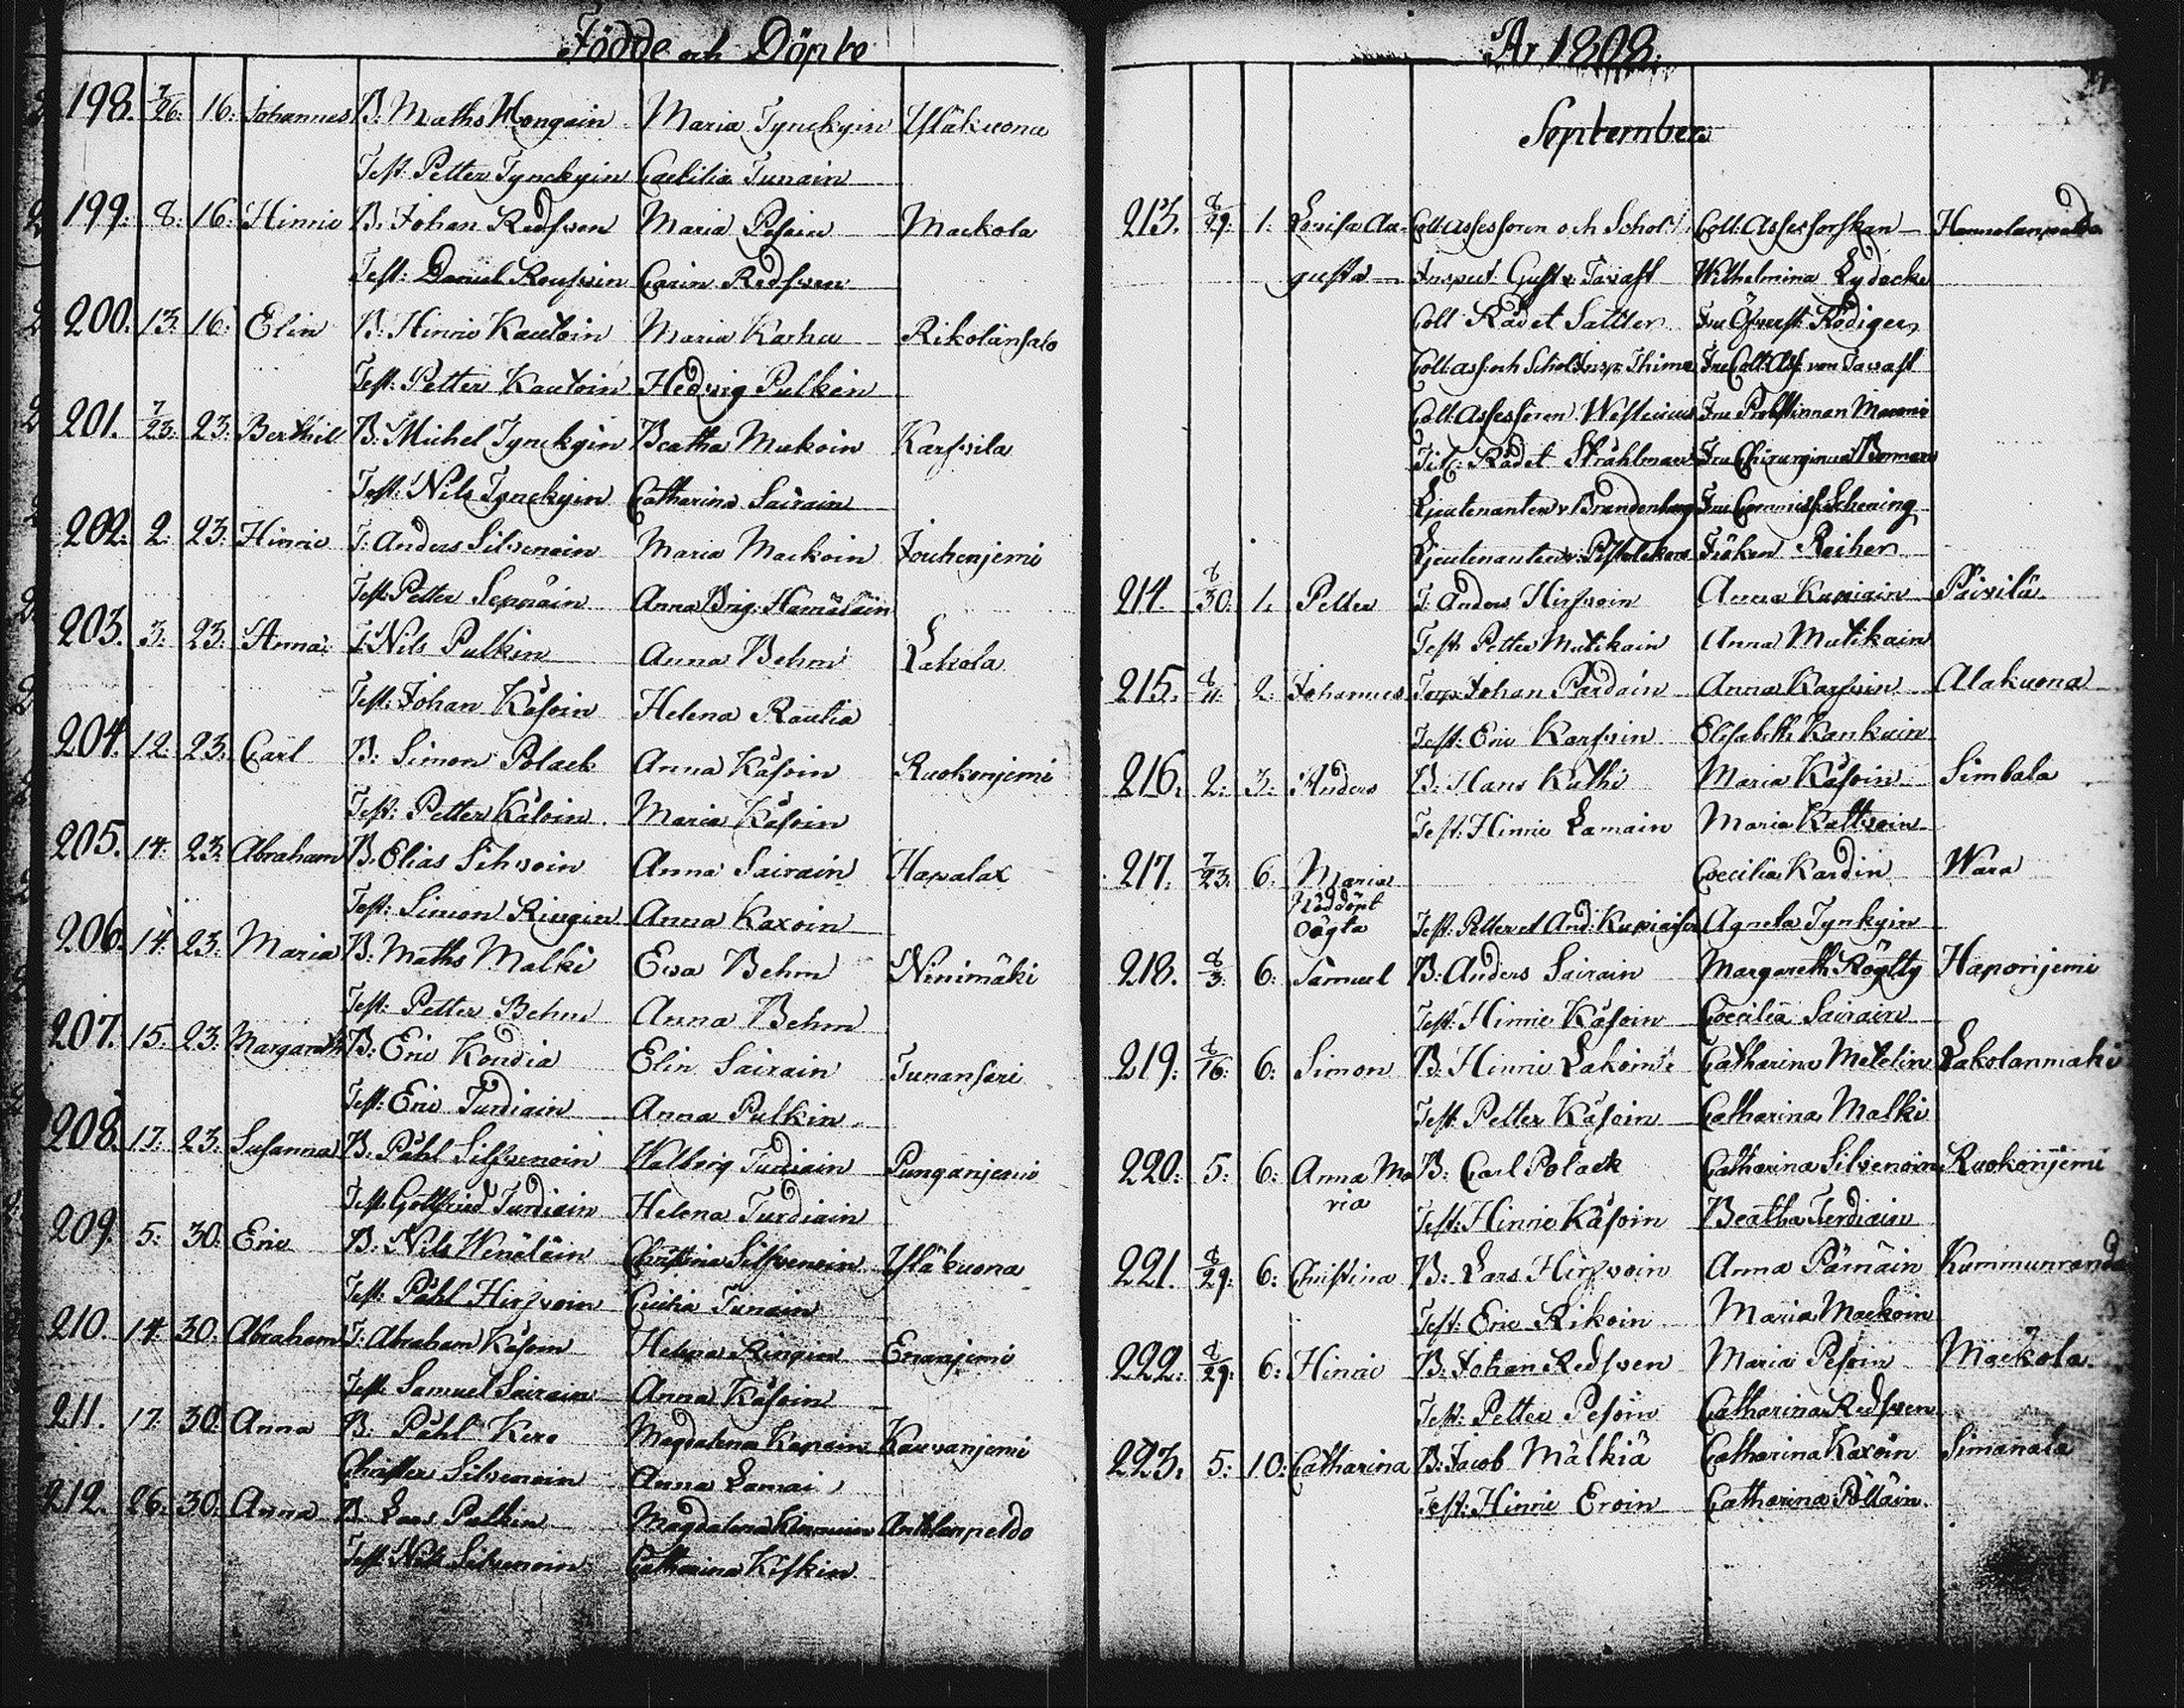 Födde och Döpte
198. 7/26: 16: Johannes B: Maths Hongain Maria Tynckyin Yläkuona
Test: Petter Tynckyin Caecilia Tunain
199. 8: 16: Hinric B. Johan Redsven Maria Pesoin Mackola
Test: Daniel Carin Redsven
200. 13: 16: Elin B: Hinric Kautoin Maria Karhu Rikolansalo
Test: Petter Kautoin Hedvig Pulkin
201. 7/23: 23: Berthil B: Michel Tynckyin Beatha Mukoin Karsvila
Test: Nils Tynckyin Catharina Sairain
202. 2: 23: Hinric T: Anders Silvenoin Maria Mackoin Jouhenjemi
Test: Petter Seppäin Anna Brig: Hämäläin
203. 3: 23: Anna T: Nils Pulkin Anna Behm Lakola
Test: Johan Käsoin Helena Rautia
204. 12: 23: Carl B: Simon Polack Anna Käsoin Ruokonjemi
Test: Petter Käsoin Maria Käsoin
205. 14: 23: Abraham B. Elias Sihvoin Anna Sairain Hapalax
Test: Simon Ringin Anna Kaxoin
206. 14: 23: Maria B: Maths Malki Ewa Behm Ninimäki
Test: Petter Behm Anna Behm
207. 15: 23: Margareth B: Eric Kondia Elin Sairain Tunansari
Test: Eric Turdiain Anna Pulkin
208. 17: 23: Susanna B: Påhl Silfvenoin Walborg Turdiain Punganjemi
Test: Gottfried Turdiain Helena Turdiain
209. 5: 30: Eric B: Nils Wenäläin Christina Silfvenoin Yläkuona
Test: Påhl Hirfvoin Cecilia Tunain
210. 14: 30: Abraham T: Abraham Käsoin Helena Ringin Enanjemi
Test: Samuel Sairain Anna Käsoin
211. 17: 30: Anna B: Påhl Kero Magdalena Kauvanjemi
Christer Silvenoin Anna Lamai
212. 26: 30: Anna B. Lars Pulkin Magdalena Anttlanpeldo
Test: Nils Silvenoin Catharina Kiskin
År 1808.
September
213. 8/29: 1: Lovisa Au- Coll: Assessoren och Schol: Coll: Assessorskan
gusta Inspect. Gust v. Tavast Wilhelmina Lydecke
Coll Rådet Sattler Fru Öfverst: Rödiger
Coll: ass: och Schol Insp: Thime Fru Coll: Ass: von Tavast
Coll: Assessoren Fru Probstinnan
Tit: Rådet Stråhlman Fru Chirurginnan
Lieutenanten v Brandenburg Fru
Lieutenanten v: Pistolekors Fröken Reiher
214. 8/30: 1. Petter T: Anders Hirfvoin Anna Kupiain Päivilä
Test: Petter Mutikain Anna Mutikain
215. 8/11: 2: Johannes Johan Pardain Anna Karfvin Alakuona
Test: Eric Karfvin Elisabeth Kankuin
216. 2: 3: Anders B: Hans Kuthi Maria Käsoin Simbala
Test: Hinric Lamain Maria Kattvoin
217. 7/23: 6: Maria Coecilia Kardin Wara
Nöddöpt
oägta Test: Petter et And: Agneta Tynkyin
218. 8/3: 6: Samuel B: Anders Sairain Margareth Röytty Haponjemi
Test: Hinric Käsoin Coecilia Sairain
219. 8/16: 6: Simon B: Hinric Lakoin Catharina Metelin Lakolanmaki
Test: Petter Käsoin Catharina Malki
220. 5: 6: Anna Ma B: Carl Polack Catharina Silvenoin Ruokonjemi
ria Test: Hinric Käsoin Beatha Turdiain
221. 8/29: 6: Christina B: Lars Hirfvoin Anna Pärnäin Kummunranda
Test: Eric Rikoin Maria Mackoin
222. 8/29: 6: Hinric B: Johan Redsven Maria Pesoin Mackola
Test: Petter Pesoin Catharina Redsven
223. 5: 10: Catharina B: Jacob Mälkiä Catharina Kaxoin Simanala
Test: Hinric Eroin Catharina Pölläin